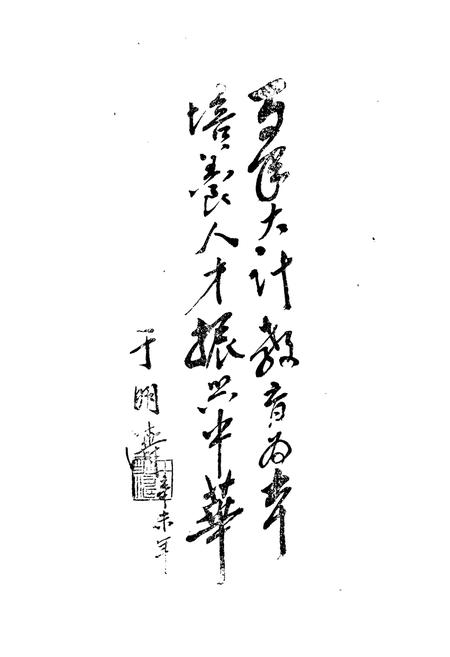 百年大计教育为本
培養人才振兴中華
于明
辛未年